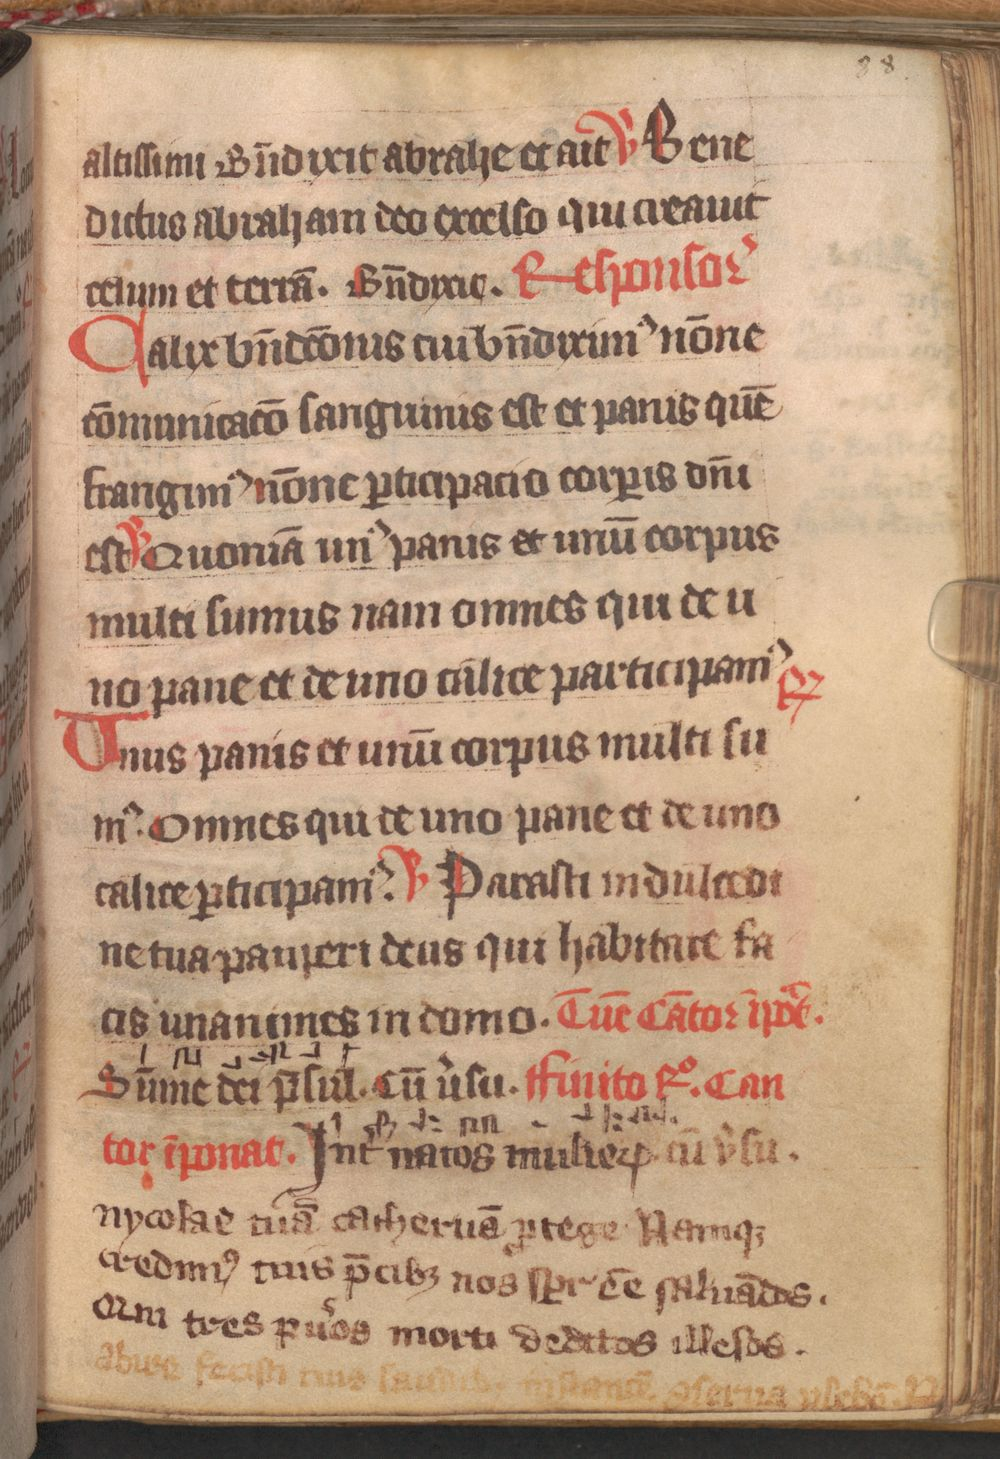 38
altissimi Bn̄dixit abrahe et ait ℣ Bene
dictus abraham deo excelso qui creauit
celum et terrā. Bn̄dixit. Responsoꝛ
Calix bn̄dcōnis cui bn̄dixim⁹ nōne
cōmunicacō sanguinis est et panis quē
frangim⁹ nōne ꝑticipacio corꝑis dn̄i
est ℣ Quoniā un⁹ panis et unū corpus
multi sumus nam omnes qui de u
no pane et de uno calice participam⁹ ℞
Unus panis et unū corpus multi su
m⁹. Omnes qui de uno pane et de uno
calice ꝑticipam⁹. ℣ Parasti in dulcedi
ne tua pauperi deus qui habitare fa
cis unanimes in domo. Tūc Cātoꝛ īpōt.
Sūme dei p̄sul. Cū v̓su. ffinito ℞º. Can
tor īponat. Int̓ natos mulieꝝ cū v̓su.
nycolae tuā catheruā ꝓtege Namqꝫ
credim⁹ tuis p̄cibꝫ nos sꝑ ēe saluādos.
Qui tres pu̓os morti deditos illesos.
abire fecisti tuis laudibꝫ